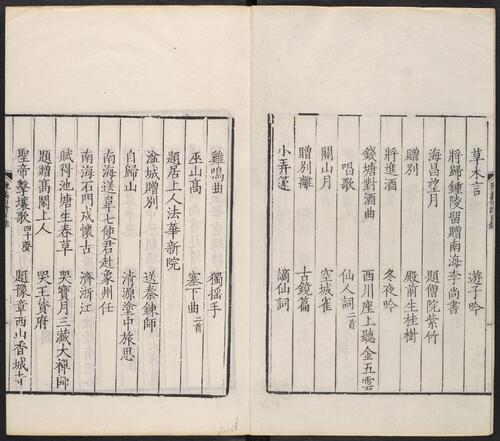 草木言　遊子吟
將歸鍾陵留贈南海李尚書
海昌望月　題僧院紫竹
贈別　殿前生桂樹
將進酒　冬夜吟
錢塘對酒曲　西川座上聽金五雲
唱歌　仙人詞二首
關山月　空城雀
贈別離　古鏡篇
小弄篴　謫仙詞
雞鳴曲　獨搖手
巫山高　塞下曲二首
題居上人法華新院
湓城贈別　送秦鍊師
自歸山　清源塗中旅思
南海送韋七使君赴象州任
南海石門戍懷古　濟浙江
賦得池塘生春草　哭寶月三藏大禪師
題贈高閑上人　哭王賁府
聖帝擊壤歌四十聲　題豫章西山香城寺